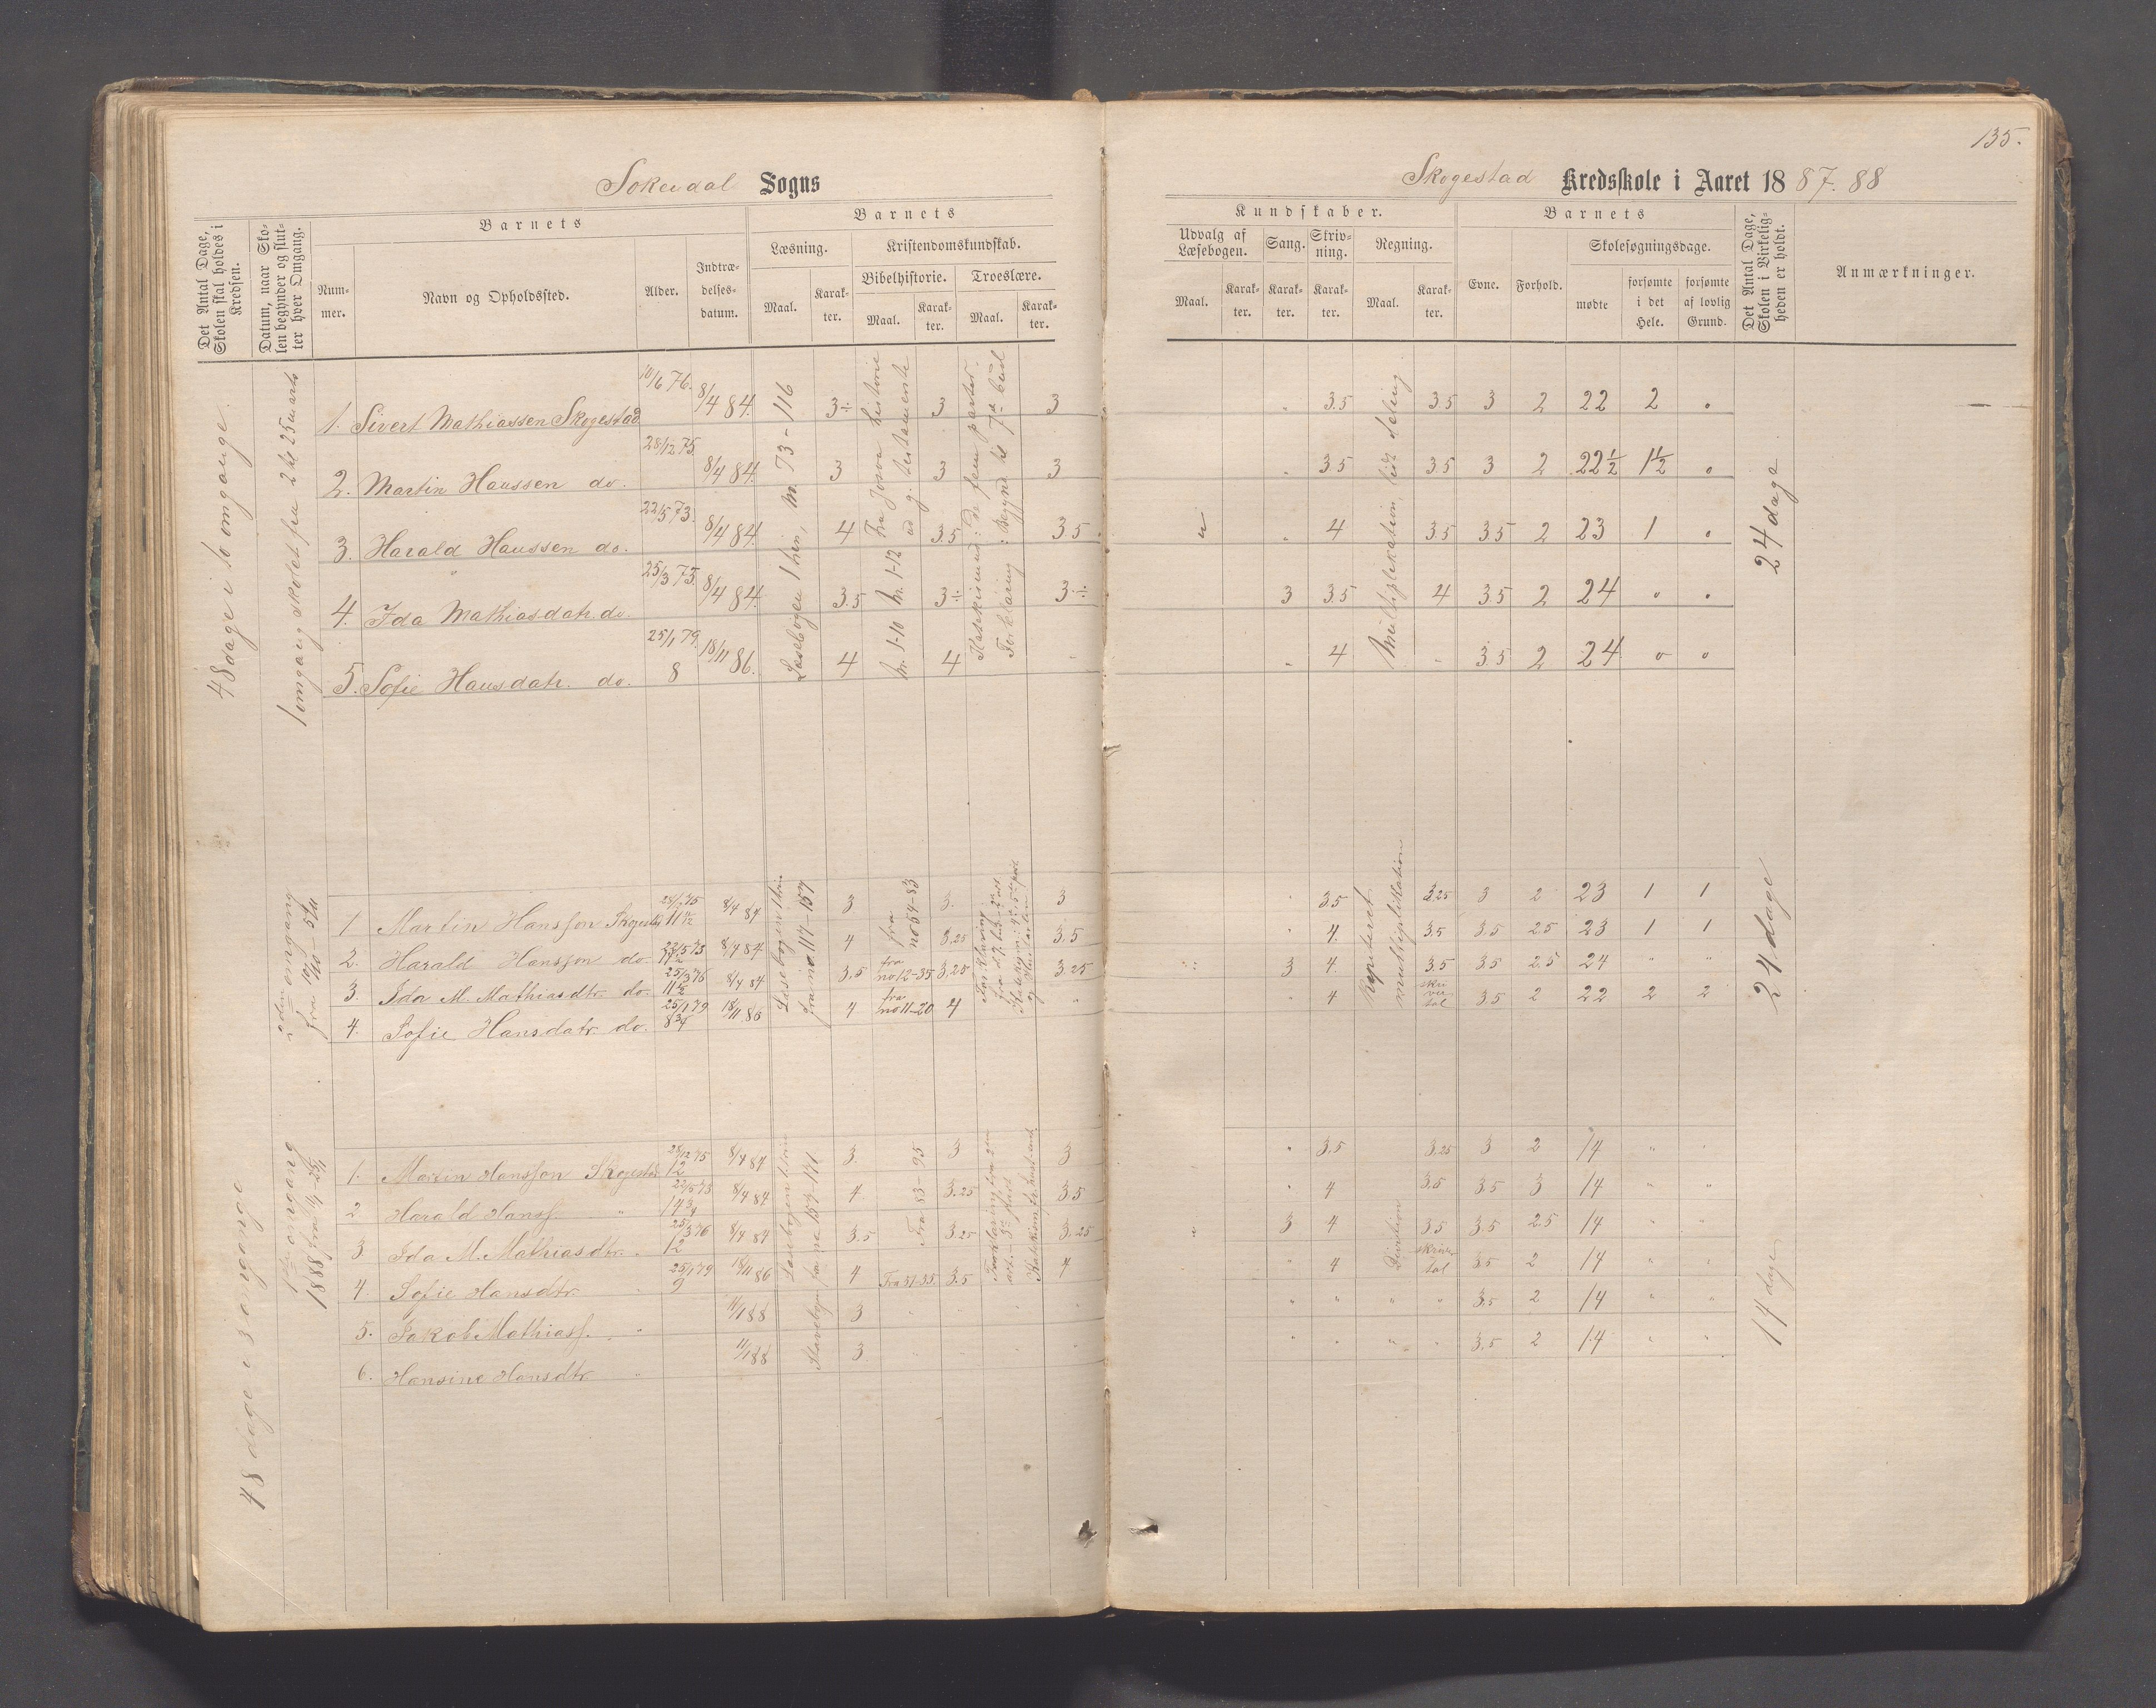 135.
Sokendal Sogns
Skogestad Kredsskole i Aaret 1887-88
Det Antal Dage, Skolen skal holdes i Kredsen.
Datum, naar Skolen begynder og slutter hver Omgang.
Barnets
Nummer.
Navn og Opholdssted.
Alder.
Indtrædelsesdatum.
Barnets
Læsning.
Kristendomskundskab.
Bibelhistorie.
Troeslære.
Maal. Karakter. Maal. Karakter. Maal. Karakter.
Kundskaber.
Udvalg af Læsebogen.
Sang.
Skrivning.
Regning.
Maal. Karakter. Karakter. Karakter. Maal. Karakter.
Barnets
Evne. Forhold.
Skolesøgningsdage.
mødte
forsømte i det Hele.
forsømte af lovlig Grund.
Det Antal Dage, Skolen i Virkeligheden er holdt.
Anmærkninger.
48 dage i to omgange.
1 omgang skolet fra 2 til 25 marts
Læsebogen 1 trin, nr. 73-116
Fra Josva historie
nr. 1-12
nr. 1-10
Multiplikation
24 dage
1. Sivert Mathiassen Skogestad 10/6 76. 8/4 84. 3÷ 3 3 3.5 3.5 3 2 22 2 0
2. Martin Hanssen do. 28/12 75. 8/4 84. 3 3 3 3.5 3.5 3 2 22½ 1½ 0
3. Harald Hanssen do. 22/5 73. 8/4 84. 4 3.5 3.5 4 3.5 3.5 2 23 1 0
4. Ida Mathiasdatr. do. 25/3 75. 8/4 84. 3.5 3÷ 3÷ 3 3.5 4 3.5 2 24 0 0
5. Sofie Hansdatr. do. 25/1 79. 8 18/11 86. 4 4 4 3.5 2 24 0 0
2den omgang
fra 10/10 - 5/11
Læsebogen 1 trin
fra no 117-157
Repeteret
multiplikation
24 dage
1 Martin Hansson Skogestad 11½ 8/4 84 3 fra no 64-83 3. 3 3.5 3.25 3 2 23 1 1
2. Harald Hansson do. 22/5 73 8/4 84 4 3.25 3.5 4. 3.5 3.5 2.5 23 1 1
3. Ida M. Mathiasdtr. do. 25/3 76 8/4 84 3.5 fra no 12-35 3.25 3.25 3 4. 3.5 3.5 2.5 24 " "
4. Sofie Hansdatr. do. 25/1 79 8¾ 18/11 86 4 fra no 11-20 4 " 4 3.5 2 22 2 2
48 dage i 3 omgange
omgang
1888 fra 11/1-25/1
Læsebogen 1 trin
fra no 157-171
Division
14 dage
1. Martin Hansson Skogestad 28/12 75 12 8/4 84 3. 3 3 3.5 3.25 3 2 14 " "
2. Harald Hanss. " 22/5 73 14¾ 8/4 84 4. Fra 83-95 3.25 3.5 4 3.5 3.5 3 14 " "
3 Ida M. Mathiasdtr. " 25/3 76 12 8/4 84 3.5 3.25 3.25 3 4 3.5 3.5 2.5 14 " "
4. Sofie Hansdtr. " 25/1 79 9 18/11 86 4 3.5 4 4 3.5 2 14 " "
5. Jakob Mathiass. " 11/1 88 3 3.5 2 14 " "
6. Hansine Hansdtr. " 11/1 88 3. 3.5 2 14 " "